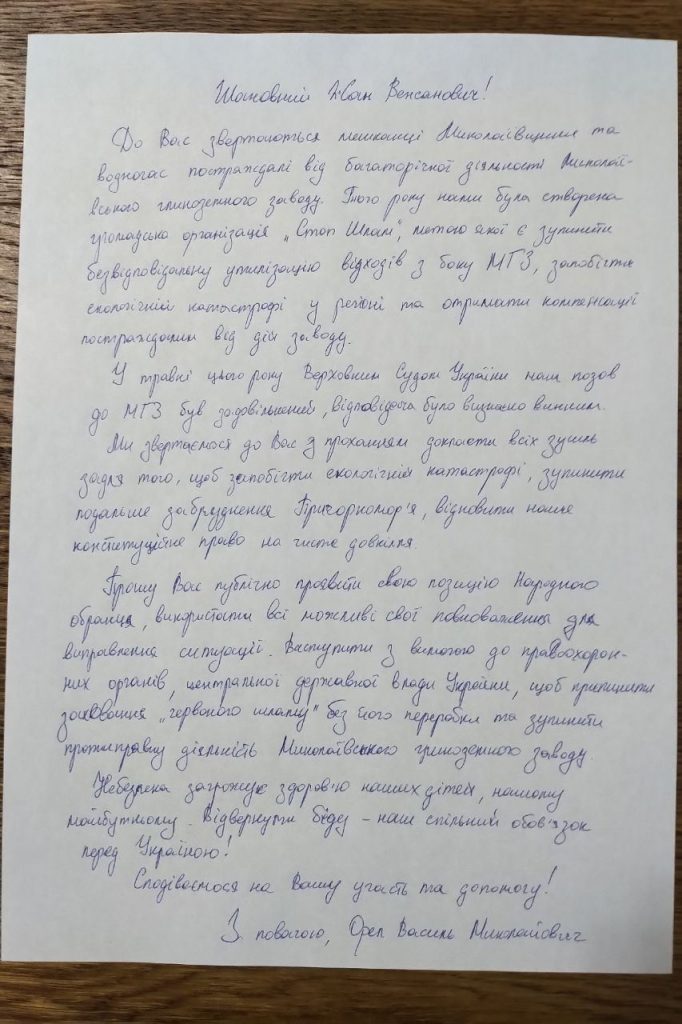 Шановний Іван Венсанович!
До Вас звертаються мешканці Миколаївщини та
водночас постраждалі від багаторічної діяльності Миколаї-
вського глиноземного заводу. Того року нами була створена
громадська організація „Стоп Шлам", метою якої є зупинити
безвідповідальну утилізацію відходів з боку МГЗ, запобігти
екологічній катастрофі у регіоні та отримати компенсації
постраждалим від дій заводу.
У травні цього року Верховним Судом України наш позов
до МГЗ був задовільнений, відповідача було визнано винним.
Ми звертаємося до Вас з проханням докласти всіх зусиль
задля того, щоб запобігти екологічній катастрофі, зупинити
подальше забруднення Причорномор'я, відновити наше
конституційне право на чисте довкілля.
Прошу Вас публічно проявити свою позицію Народного
обранця, використати всі можливі свої повноваження для
виправлення ситуації. Виступити з вимогою до правоохорон-
них органів, центральної державної влади України, щоб припинити
заховання „червоного шламу" без його переробки та зупинити
протиправну діяльність Миколаївського глиноземного заводу.
Небезпека загрожує здоров'ю наших дітей, нашому
майбутньому. Відвернути біду – наш спільний обов'язок
перед Україною!
Сподіваємося на Вашу участь та допомогу!
З повагою, Орел Василь Миколайович